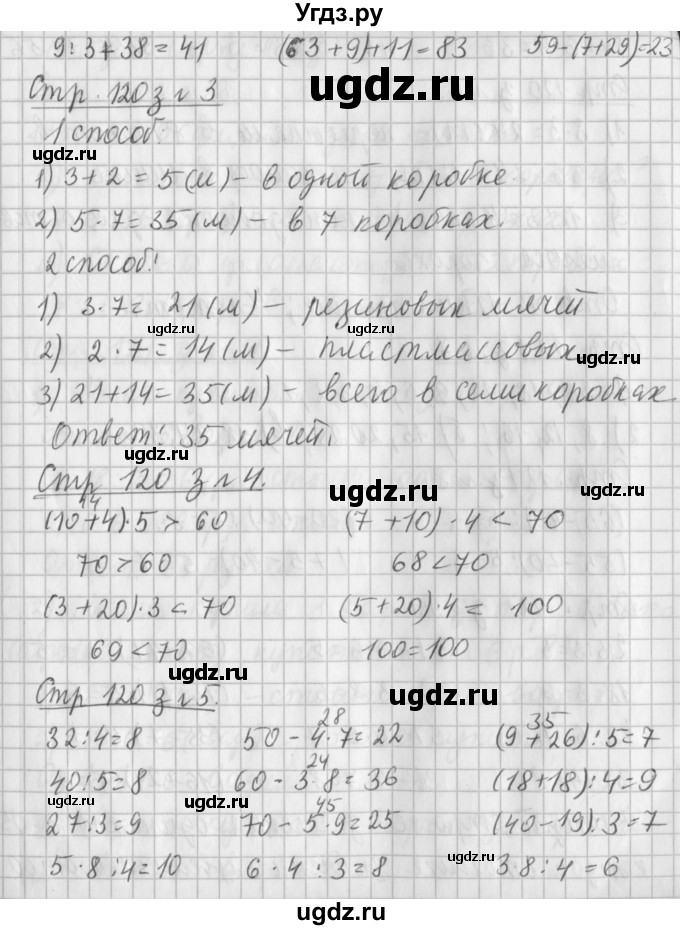 Угдз.ру
9:3+38=41 (63+9)+11=83 59-(7+29)=23
Стр. 120 з №3
ugdz.ru
1 способ:
ugdz.ru
1) 3+2=5(м) – в одной коробке.
ugdz.ru
2) 5·7=35(м) – в 7 коробках.
2 способ!
1) 3·7=21(м) – резиновых мячей
ugdz.ru
2) 2·7=14(м) – пластмассовых
ugdz.ru
3) 21+14=35(м) – всего в семи коробках
Ответ! 35 мячей.
ugdz.ru
Стр 120 з №4.
ugdz.ru
14
(10+4)·5>60 (7+10)·4<70
70>60 68<70
ugdz.ru
(3+20)·3<70 (5+20)·4=100
69<70 100=100
ugdz.ru
Стр 120 з №5.
ugdz.ru
28 35
32:4=8 50-4·7=22 (9+26):5=7
ugdz.ru
24
40:5=8 60-3·8=36 (18+18):4=9
ugdz.ru ugdz.ru
45
27:3=9 70-5·9=25 (40-19):3=7
ugdz.ru
5·8:4=10 6·4:3=8 3·8:4=6
ugdz.ru
ugdz.ru